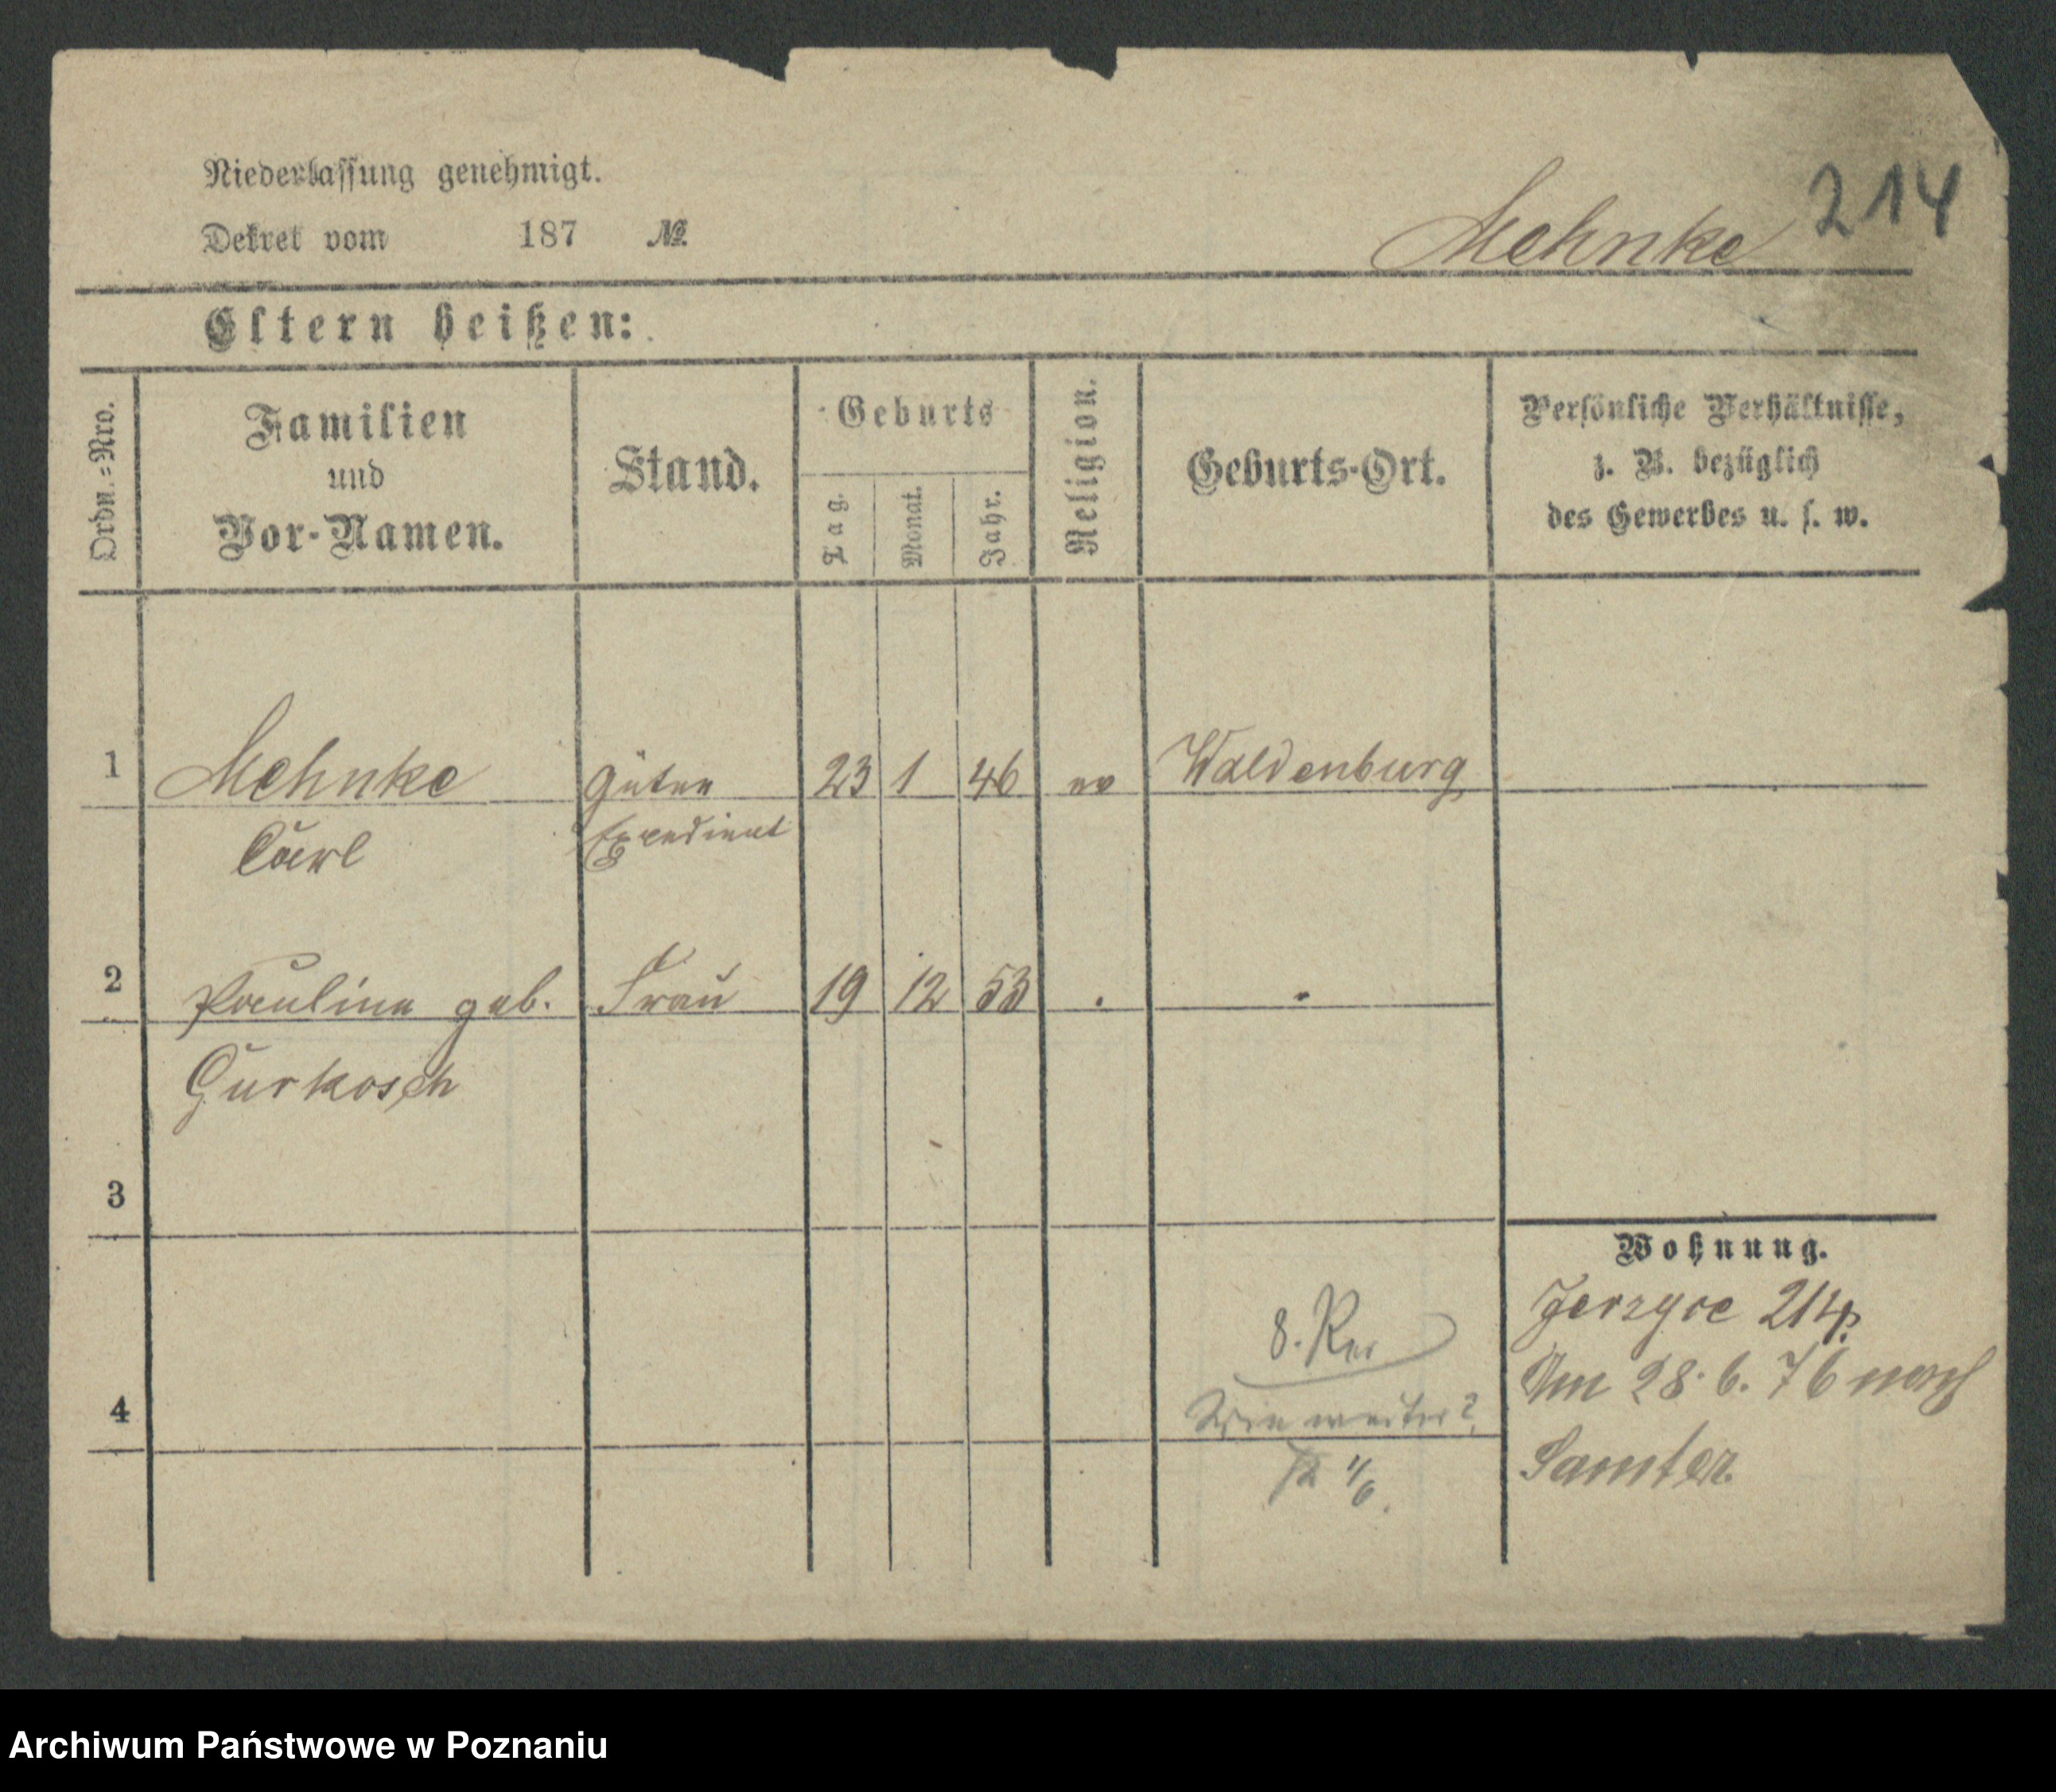 Niederlassung genehmigt.
Dekret vom 187 №
Mehnke 214
Eltern heißen:
Ordn.=Nro.
Familien
und
Vor-Namen.
Stand.
Geburts
Tag.
Monat.
Jahr.
Religion.
Geburts-Ort.
Persönliche Verhältnisse,
z. B. bezüglich
des Gewerbes u. s. w.
1 Mehnke Güter 23 1 46 ev Waldenburg
Carl Expedient
2 Pauline geb. Frau 19 12 53 . .
Gurkosch
3
Wohnung.
Jerzyce 214
Am 28. 6. 76 nach
Samter
8.
Wie weiter?
4
1/6.
Archiwum Państwowe w Poznaniu